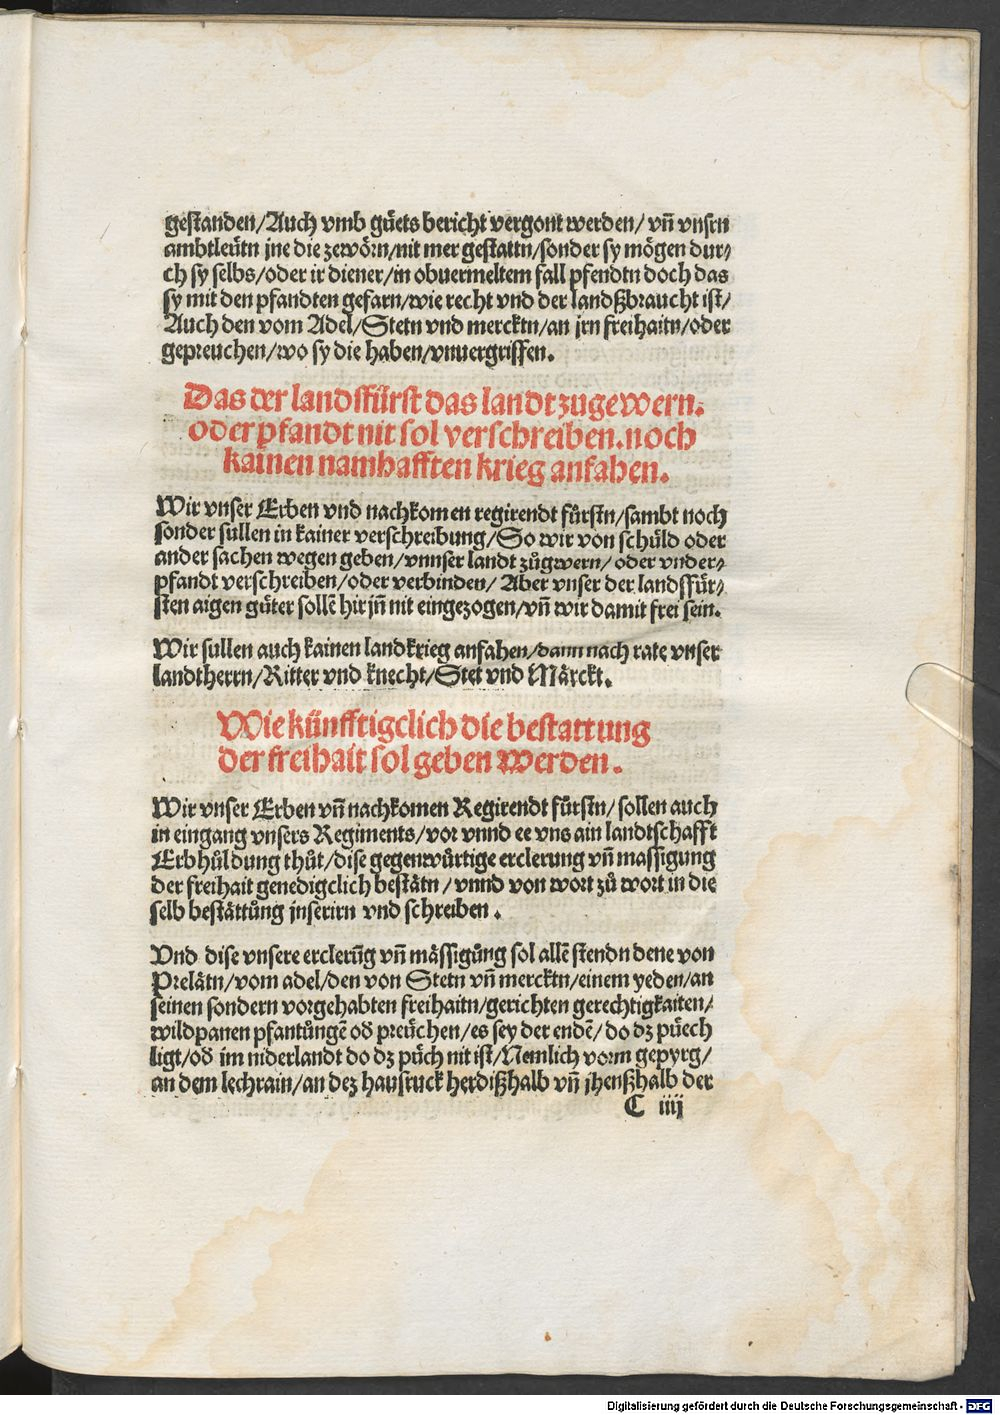 gestanden/Auch vmb guͤets bericht vergont werden/ vn̄ vnsrn
ambtleuͤtn jne die zewoͤrn/nit mer gestattn/sonder sy moͤgen dur⸗
ch sy selbs/oder ir diener/in obuermeltem fall pfendtn doch das
sy mit den pfandten gefarn/wie recht vnd der landßbraucht ist/
Auch den vom Adel/Stetn vnd mercktn/an jrn freihaitn/oder
gepreuchen/wo sy die haben/vnuergriffen.
Das der landsfürst das landt zugewern.
oder pfandt nit sol verschreiben. noch
kainen namhafften krieg anfahen.
Wir vnser Erben vnd nachkomen regirendt fuͤrstn/sambt noch
sonder sullen in kainer verschreibung/So wir von schuͤld oder
ander sachen wegen geben/vnnser landt zuͦgwern/ oder vnder⸗
pfandt verschreiben/oder verbinden/ Aber vnser der landsfuͤr⸗
sten aigen guͤter sollē hir jn̄ nit eingezogen/vn̄ wir damit frei sein.
Wir sullen auch kainen landkrieg anfahen/dann nach rate vnser
landtherrn/Ritter vnd knecht/Stet vnd Maͤrckt.
Wie künfftigclich die bestattung
der freihait sol geben werden.
Wir vnser Erben vn̄ nachkomen Regirendt fuͤrstn/ sollen auch
in eingang vnsers Regiments/vor vnnd ee vns ain landtschafft
Erbhuͦldung thuͦt/dise gegenwuͤrtige erclerung vn̄ massigung
der freihait genedigclich bestaͤtn/vnnd von wort zuͦ wort in die
selb bestaͤttuͦng jnserirn vnd schreiben.
Vnd dise vnsere erclerūg vn̄ maͤssiguͦng sol allē stendn dene von
Prelaͤtn/vom adel/den von Stetn vn̄ mercktn/einem yeden/an
seinen sondern vorgehabten freihaitn/gerichten gerechtigkaiten/
wildpanen pfantuͦngē od preuͤchen/es sey der endē/do dz puͤech
ligt/od im niderlandt do dz puͤch nit ist/Nemlich vorm gepyrg/
an dem lechrain/an dez hausruck herdißhalb vn̄ jhenßhalb der
C iiij
Digitalisierung gefördert durch die Deutsche Forschungsgemeinschaft - DFG